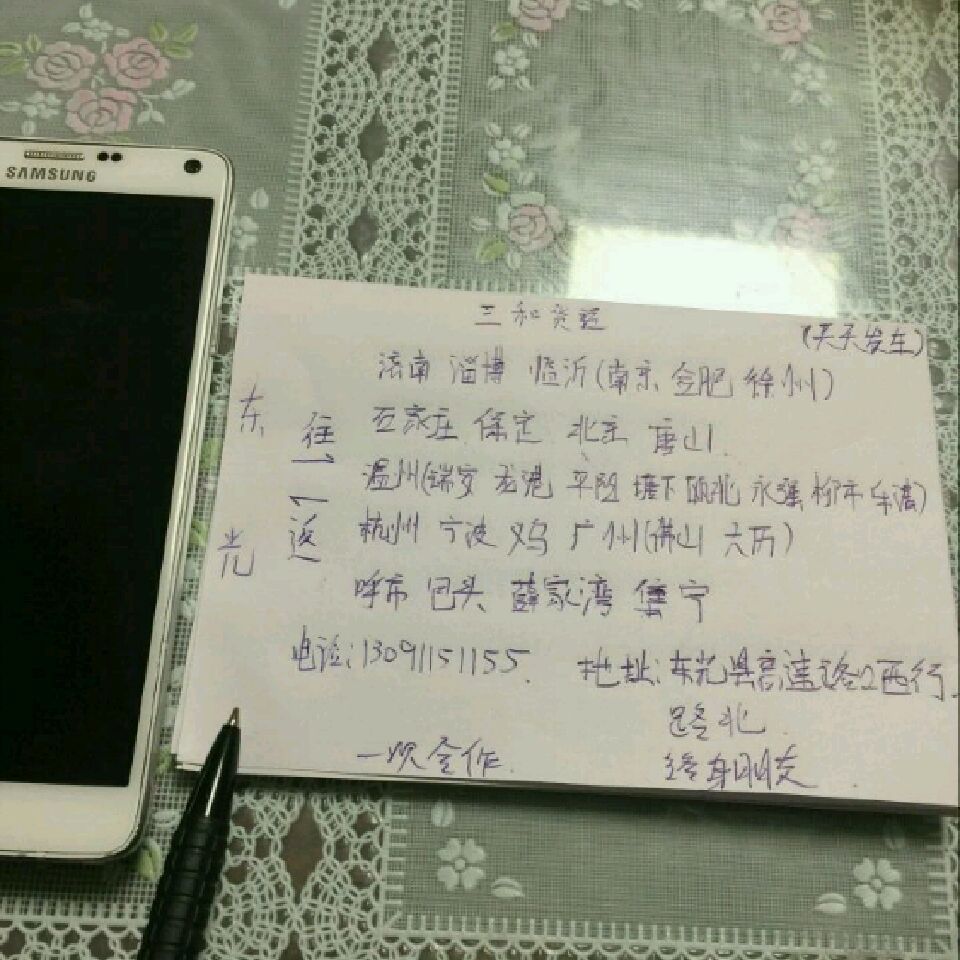 SAMSUNG
三和货运
(天天发车)
济南 淄博 临沂(南京 合肥 徐州)
东光
往返
石家庄 保定 北京 唐山
温州(瑞安 龙港 平阳 塘下 瓯北 永强 柳市 乐清)
杭州 宁波 义乌 广州(佛山 大历)
呼市 包头 薛家湾 集宁
电话:13091151155
地址:东光县高速路口西行
路北
一次合作
终身朋友